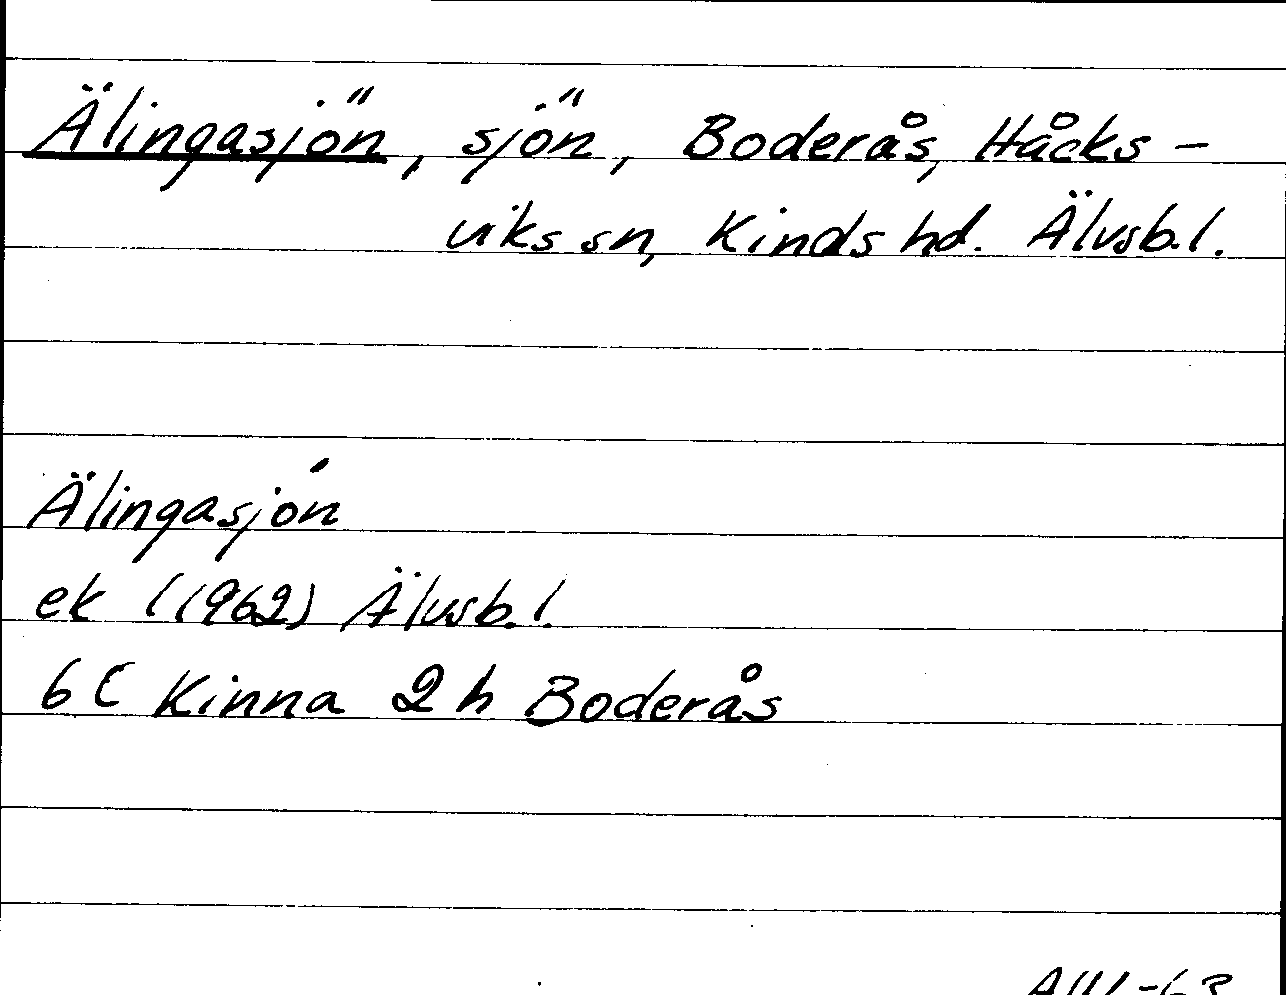 Älingasjön, sjön, Boderås, Håcks-
viks sn, Kinds hd. Älvsb.l.
Älingasjön
ek (1962) Älvsb.l.
6C Kinna 2h Boderås